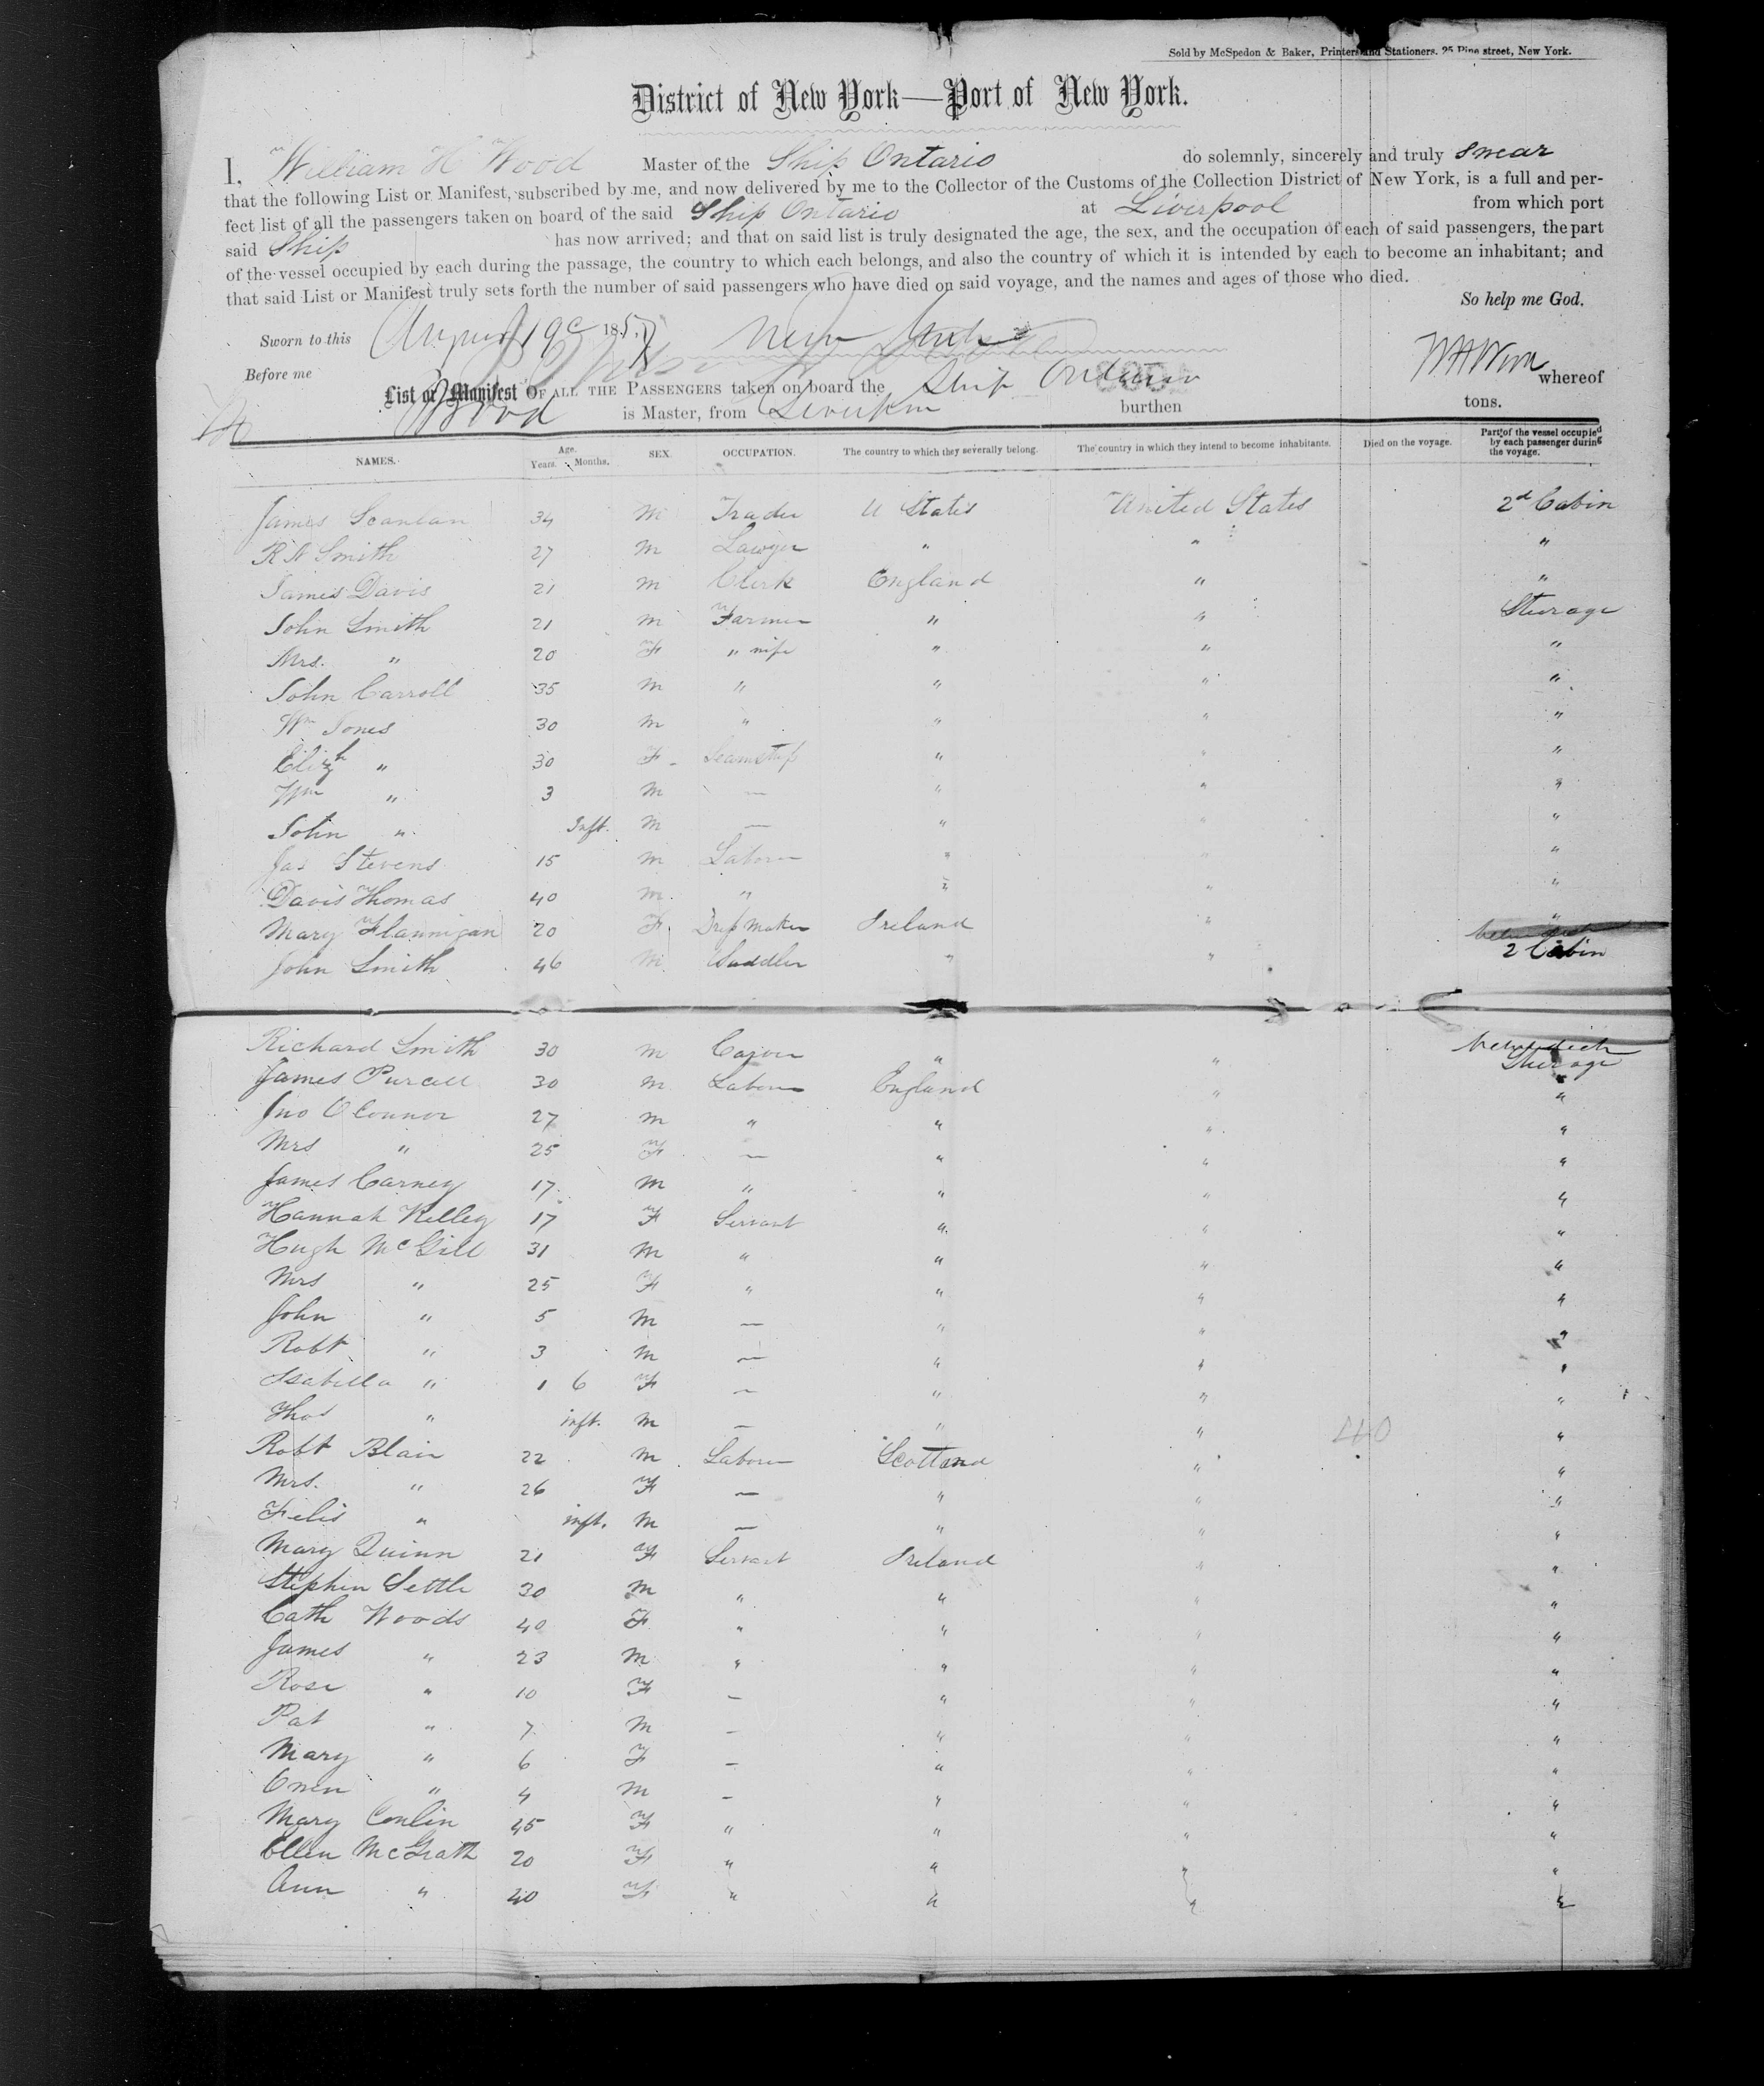 Sold by McSpedon & Baker, Printers and Stationers. 25 Pine street, New York.
District of New York—Port of New York.
I, William H Wood Master of the Ship Ontario do solemnly, sincerely and truly swear
that the following List or Manifest, subscribed by me, and now delivered by me to the Collector of the Customs of the Collection District of New York, is a full and per-
fect list of all the passengers taken on board of the said Ship Ontario at Liverpool from which port
said Ship has now arrived; and that on said list is truly designated the age, the sex, and the occupation of each of said passengers, the part
of the vessel occupied by each during the passage, the country to which each belongs, and also the country of which it is intended by each to become an inhabitant; and
that said List or Manifest truly sets forth the number of said passengers who have died on said voyage, and the names and ages of those who died.
So help me God.
Sworn to this August 19 185
Before me
List or Manifest OF ALL THE PASSENGERS taken on board the Ship Ontario whereof
Wood is Master, from burthen tons.
NAMES. Age. Years. Months. SEX. OCCUPATION. The country to which they severally belong. The country in which they intend to become inhabitants. Died on the voyage. Part of the vessel occupied by each passenger during the voyage.
James Scanlan 34 M Trader U States United States 2d Cabin
R N Smith 27 M Lawyer " " "
James Davis 21 M Clerk England " "
John Smith 21 M Farmer " " Sterage
Mrs. " 20 F " wife " " "
John Carroll 35 M " " " "
Wm Jones 30 M " " " "
Elizh " 30 F Seamstress " " "
Wm " 3 M — " " "
John " Inft. M — " " "
Jas Stevens 15 M Laborer " " "
Davis Thomas 40 M " " " "
Mary Flannigan 20 F Dress Maker Ireland " "
John Smith 46 M Saddler " " 2 Cabin
Richard Smith 30 M " " Sterage
James Purcell 30 M Laborer England " "
Jno O'Connor 27 M " " " "
Mrs " 25 F — " " "
James Carney 17 M " " " "
Hannah Kelley 17 F Servant " " "
Hugh McGill 31 M " " " "
Mrs " 25 F " " " "
John " 5 M — " " "
Robt " 3 M — " " "
Isabella " 1 6 F — " " "
Thos " inft. M — " " "
Robt Blair 22 M Laborer Scotland " "
Mrs. " 26 F — " " "
Felis " inft. M — " " "
Mary Quinn 21 F Servant Ireland " "
Stephen Settle 30 M " " " "
Cath Woods 40 F " " " "
James " 23 M " " " "
Rose " 10 F — " " "
Pat " 7 M — " " "
Mary " 6 F — " " "
Owen " 4 M — " " "
Mary Conlin 45 F " " " "
Ellen McGrath 20 F " " " "
Ann " 40 F " " " "